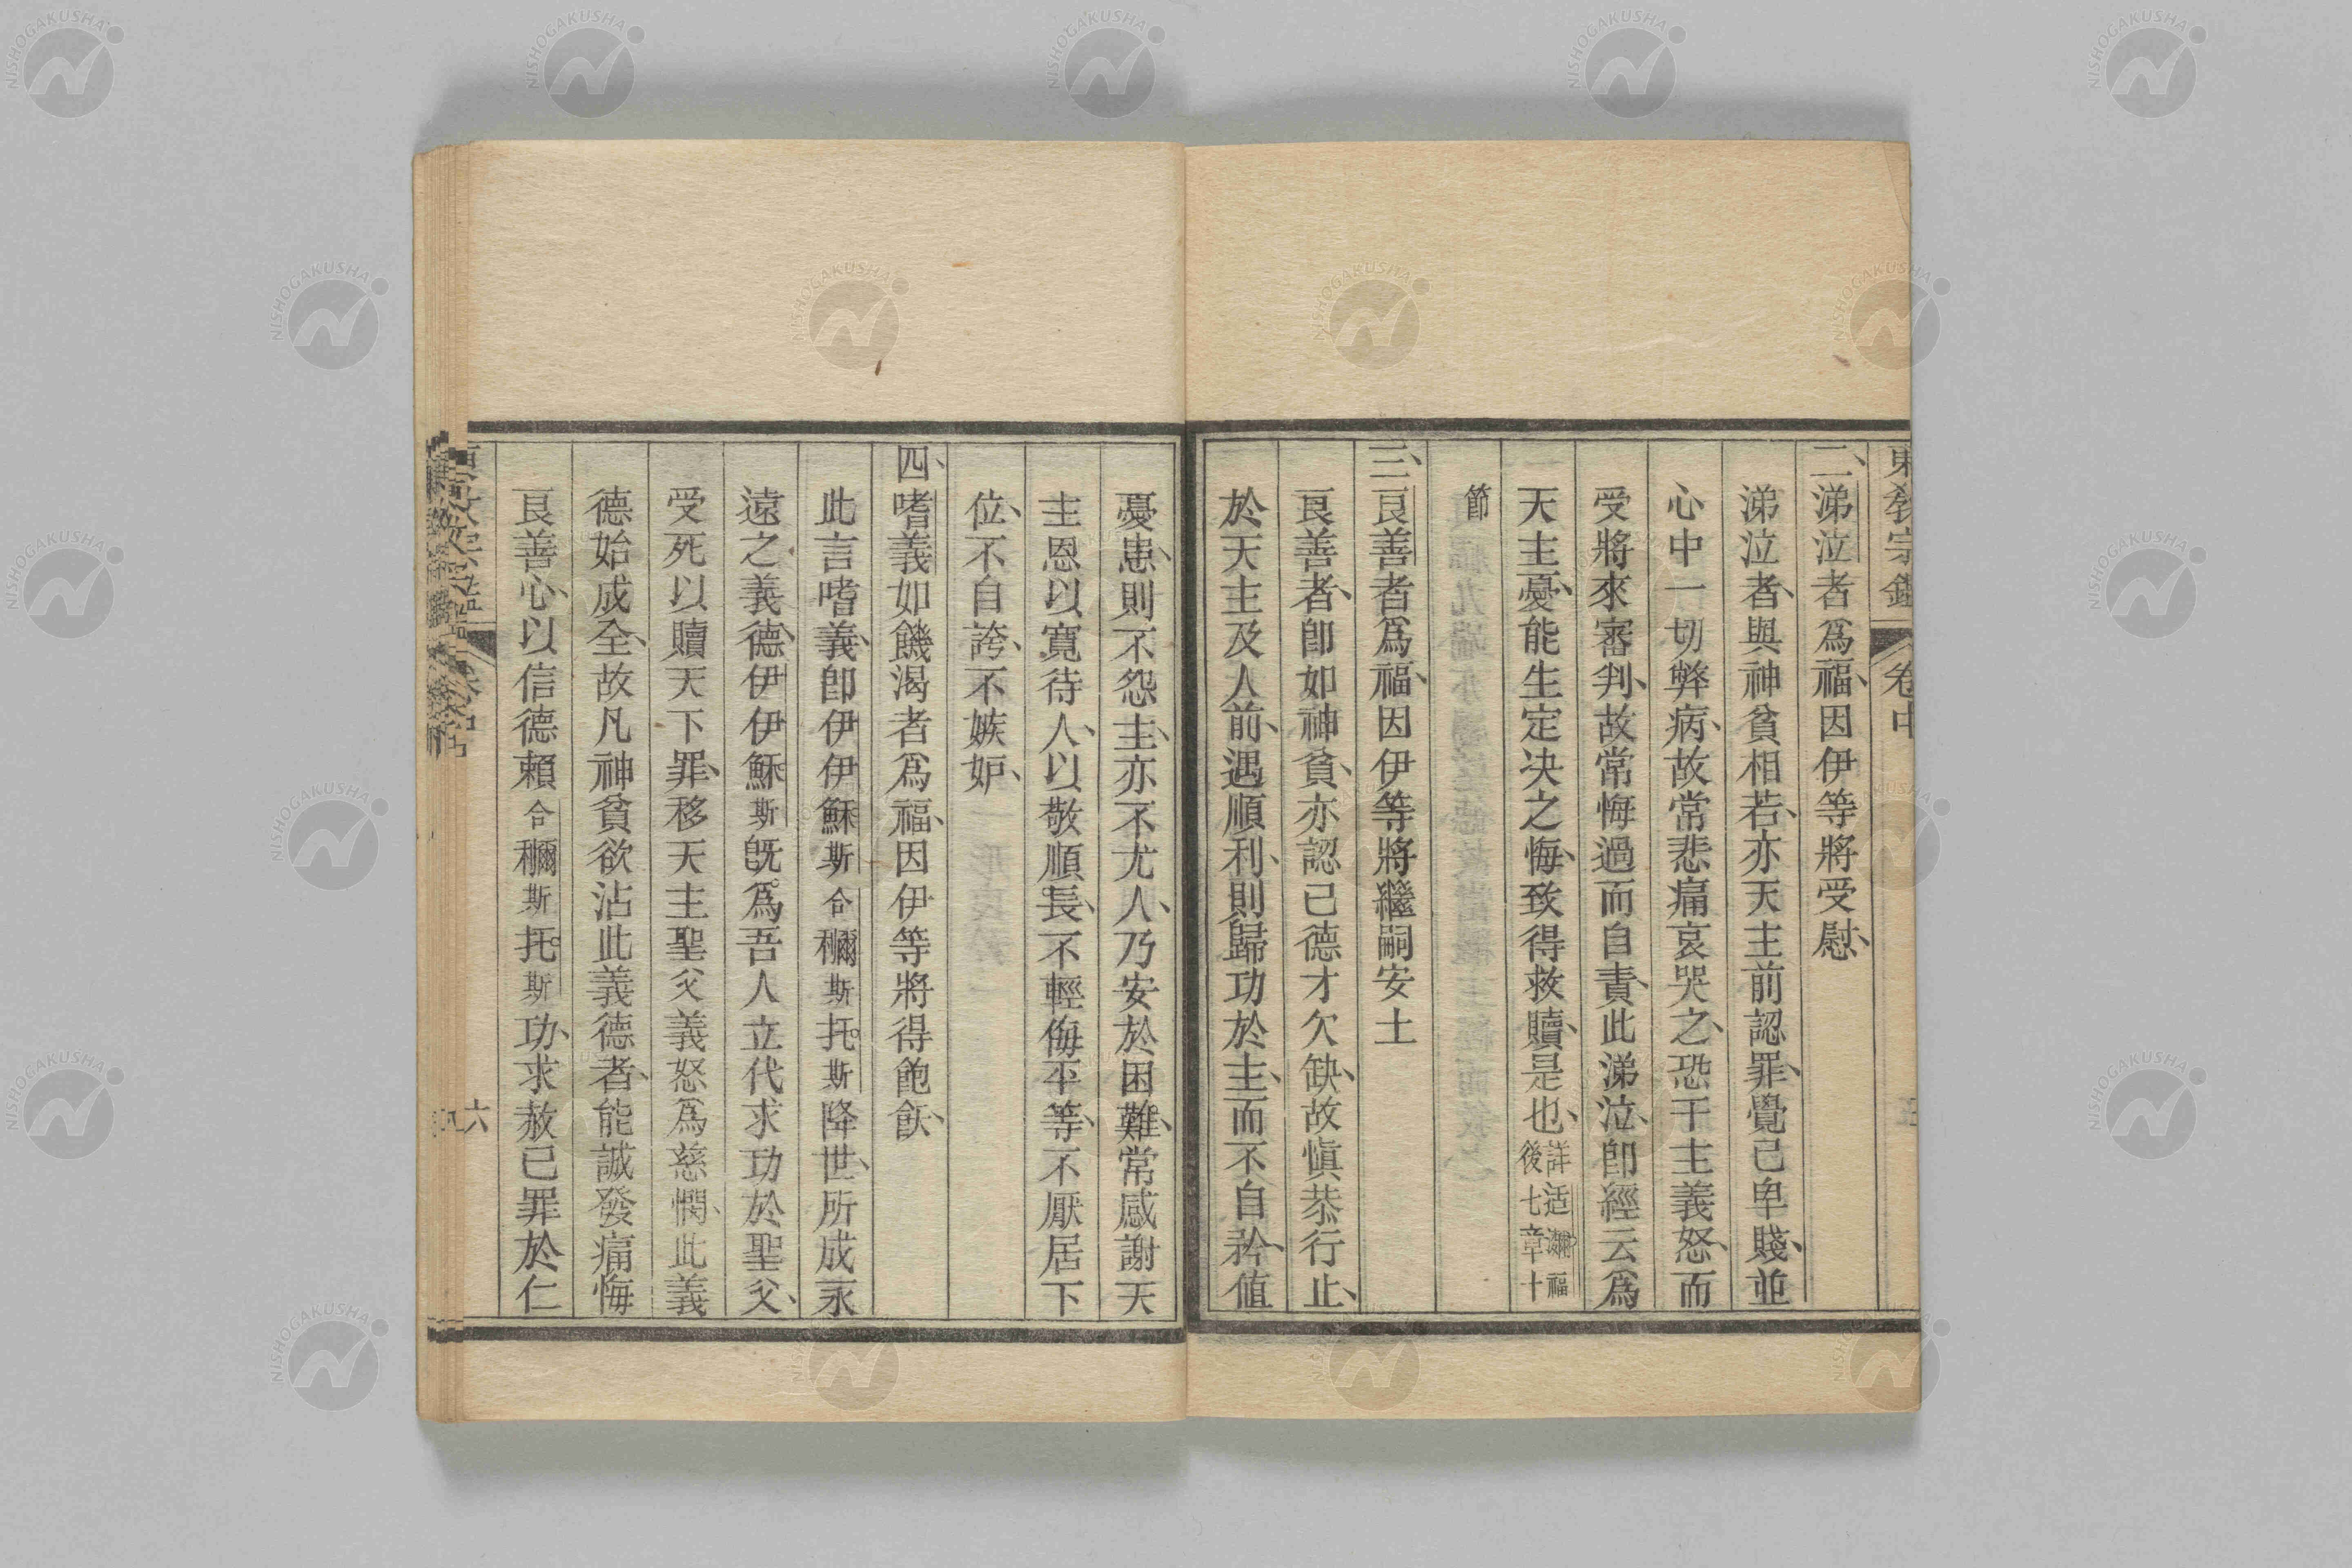 東教宗鑑 卷中
二、涕泣者爲福、因伊等將受慰、
涕泣者、與神貧相若、亦天主前認罪、覺己卑賤、並
心中一切弊病、故常悲痛哀哭之、恐干主義怒、而
受將來審判、故常悔過而自責、此涕泣、卽經云爲
天主憂、能生定決之悔、致得救贖、是也、詳适瀰福後七章十
節
三、良善者爲福、因伊等將繼嗣安土
良善者、卽如神貧、亦認己德才欠缺、故愼恭行止、
於天主及人前、遇順利、則歸功於主、而不自矜、値
憂患、則不怨主、亦不尤人、乃安於困難、常感謝天
主恩、以寬待人、以敬順長、不輕侮平等、不厭居下
位、不自誇、不嫉妒、
四、嗜義如饑渴者爲福、因伊等將得飽飫、
此言嗜義、卽伊伊穌斯合穪斯托斯降世、所成永
遠之義德、伊伊穌斯旣爲吾人立代求功於聖父、
受死以贖天下罪、移天主聖父義怒爲慈憫、此義
德始成全、故凡神貧欲沾此義德者、能誠發痛悔
良善心、以信德賴合穪斯托斯功、求赦己罪於仁
六
NISHOGAKUSHA